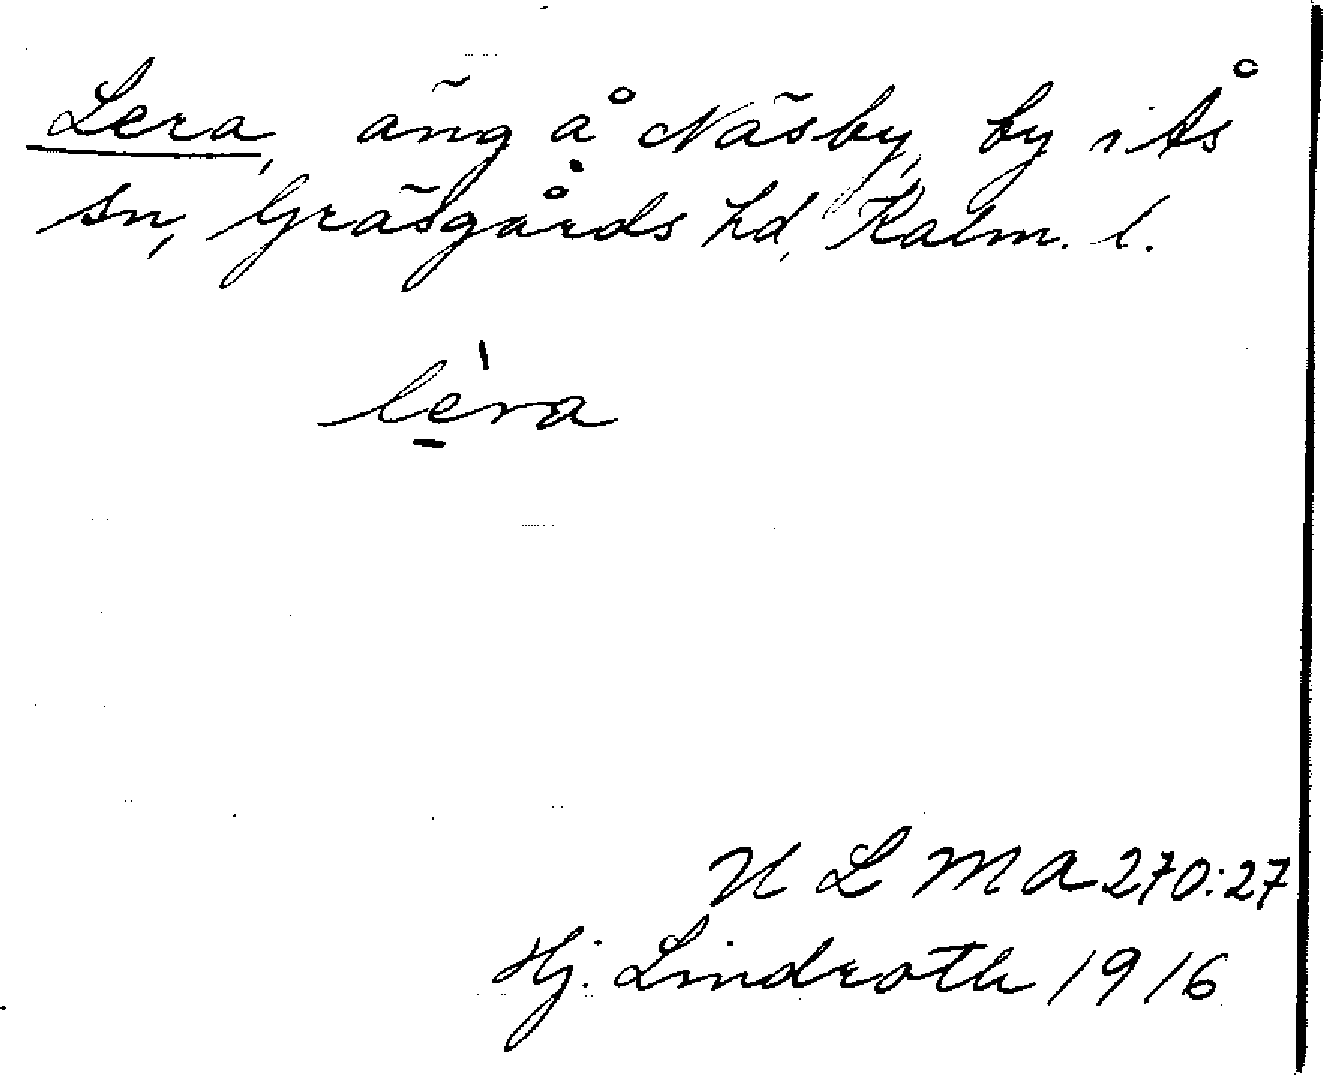 Lera, äng å Näsby, by i Ås
sn, Gräsgårds hd, Kalm. l.
lè̱ra
U L M A 270:27
Hj. Lindroth 1916